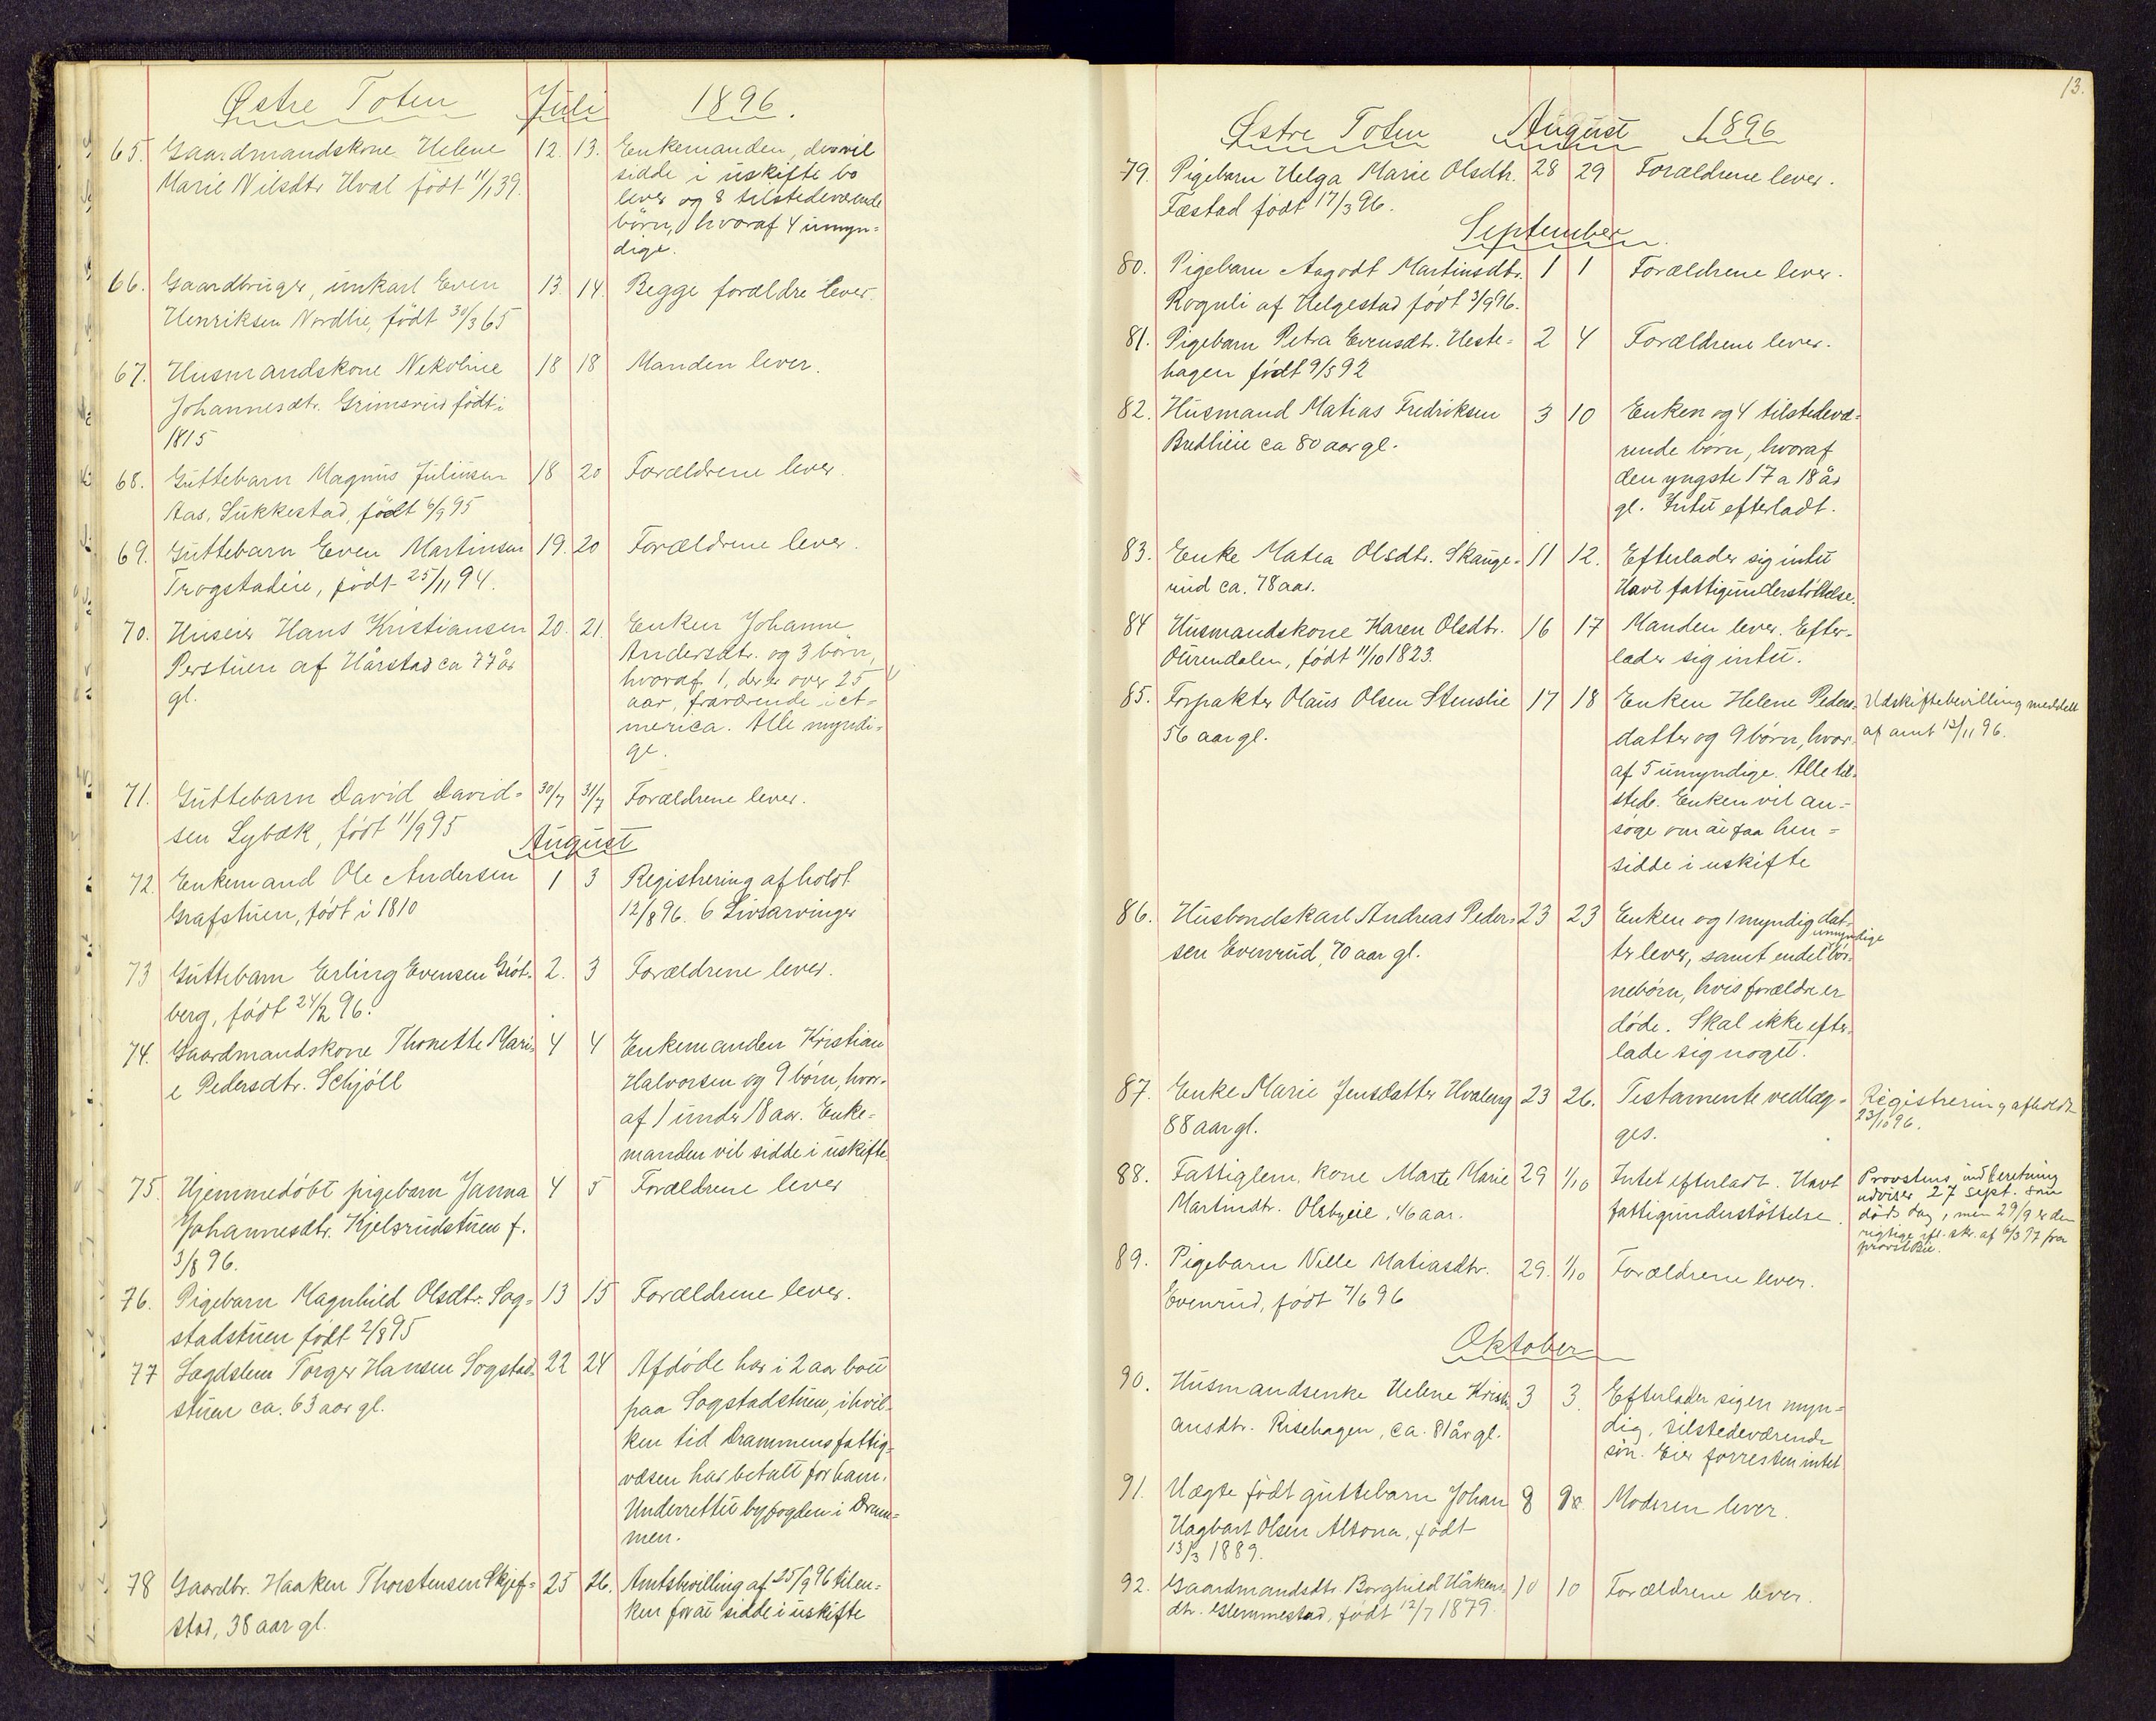 Østre Toten Juli 1896.
65. Gaardmandskone Helene 12. 13. Enkemanden, der vil
Marie Nilsdtr Hval født 11/1 39. sidde i uskifte bo
lever og 8 tilstedeværende
børn, hvoraf 4 umyn=
dige.
66. Gaardbruger, unkarl Even 13. 14. Begge forældre lever.
Henriksen Nordlie, født 30/3 65
67. Husmandskone Nekoline 18 18 Manden lever.
Johannesdtr. Grimsrud født i
1815
68. Guttebarn Magnus Juliusen 18 20 Forældrene lever.
Aas, Sukkestad, født 6/9 95
69. Guttebarn Even Martinsen 19. 20 Forældrene lever.
Trogstadeie, født 25/11 94.
70. Huseier Hans Kristiansen 20. 21. Enken Johanne
Perstuen af Hårstad ca 77 år Andersdtr. og 3 børn,
gl. hvoraf 1, der er over 25
aar, fraværende i A=
merica. Alle myndi=
ge.
71. Guttebarn David David= 30/7 31/7 Forældrene lever.
sen Lybæk, født 11/9 95
August
72. Enkemand Ole Andersen 1 3 Registrering afholdt
Grafstuen, født i 1810 12/8 96. 6 Livsarvinger
73 Guttebarn Erling Evensen Grøt= 2. 3 Forældrene lever.
berg, født 24/2 96.
74. Gaardmandskone Thonette Mari= 4 4 Enkemanden Kristian
e Pedersdtr. Schjöll Halvorsen og 9 børn, hvor=
af 1 under 18 aar. Enke=
manden vil sidde i uskifte.
75. Hjemmedøbt pigebarn Janna 4 5 Forældrene lever
Johannesdtr. Kjelsrudstuen f.
3/8 96.
76. Pigebarn Magnhild Olsdtr. Sog= 13 15 Forældrene lever.
stadstuen født 2/8 95
77 Lægdslem Torger Hansen Sogstad= 22 24 Afdøde har i 2 aar boet
stuen ca. 63 aar gl. paa Sogstadstuen, i hvil=
ken tid Drammens fattig=
væsen har betalt for ham.
Underrettet byfogden i Dram=
men.
78 Gaardbr. Haaken Thorstensen Skjef= 25 26. Amtsbevilling af 25/9 96 til en=
stad, 38 aar gl. ken for at sidde i uskifte
13.
Østre Toten August 1896
79. Pigebarn Helga Marie Olsdtr. 28 29 Forældrene lever.
Fæstad født 17/3 96.
September
80. Pigebarn Aagodt Martinsdtr. 1 1 Forældrene lever.
Rognli af Helgestad født 3/9 96.
81. Pigebarn Petra Evensdtr. Heste= 2 4 Forældrene lever.
hagen født 9/5 92
82. Husmand Matias Fredriksen 3 10 Enken og 4 tilstedevæ=
Bredlieie ca 80 aar gl. rende børn, hvoraf
den yngste 17 a 18 år
gl. Intet efterladt.
83. Enke Matea Olsdtr. Skange= 11 12. Efterlader sig intet
rud ca. 78 aar. Havt fattigunderstøttelse.
84 Husmandskone Karen Olsdtr. 16 17 Manden lever. Efter=
Ourendalen, født 11/10 1823. lader sig intet.
85. Forpakter Olaus Olsen Stenslie 17 18 Enken Helene Peders= Udskiftebevilling meddelt
56 aar gl. datter og 9 børn, hvor= af amt 12/11 96.
af 5 umyndige. Alle til=
stede. Enken vil an=
søge om at faa hen=
sidde i uskifte
86. Husbondskarl Andreas Peder= 23 23 Enken og 1 myndig dat=
sen Evenrud, 70 aar gl. umyndige
ter lever, samt endel bør=
nebørn, hvis forældre er
døde. Skal ikke efter=
lade sig noget.
87. Enke Marie Jensdatter Hvaleng 23 26. Testamente vedlæg= Registrering afholdt
88 aar gl. ges. 23/10 96.
88. Fattiglem, kone Marte Marie 29 1/10 Intet efterladt. Havt Provstens indberetning
Martindtr. Olsbyeie, 46 aar. fattigunderstöttelse. udviser 27 sept. som
døds dag, men 29/9 er den
rigtige ifl. skr. af 6/3 97 fra
provst
89. Pigebarn Nille Matiasdtr. 29. 1/10 Forældrene lever.
Evenrud, født 7/6 96
Oktober
90. Husmandsenke Helene Kristi= 3 3. Efterlader sig en myn=
ansdtr. Risehagen, ca. 81 år gl. dig, tilstedeværende
søn. Eier forresten intet
91. Uægte født guttebarn Johan 8 Moderen lever.
Hagbart Olsen Altona, født
13/3 1889.
92. Gaardmandsdtr. Borghild Håkens= 10 10 Forældrene lever.
dtr. Glemmestad, født 12/7 1879.